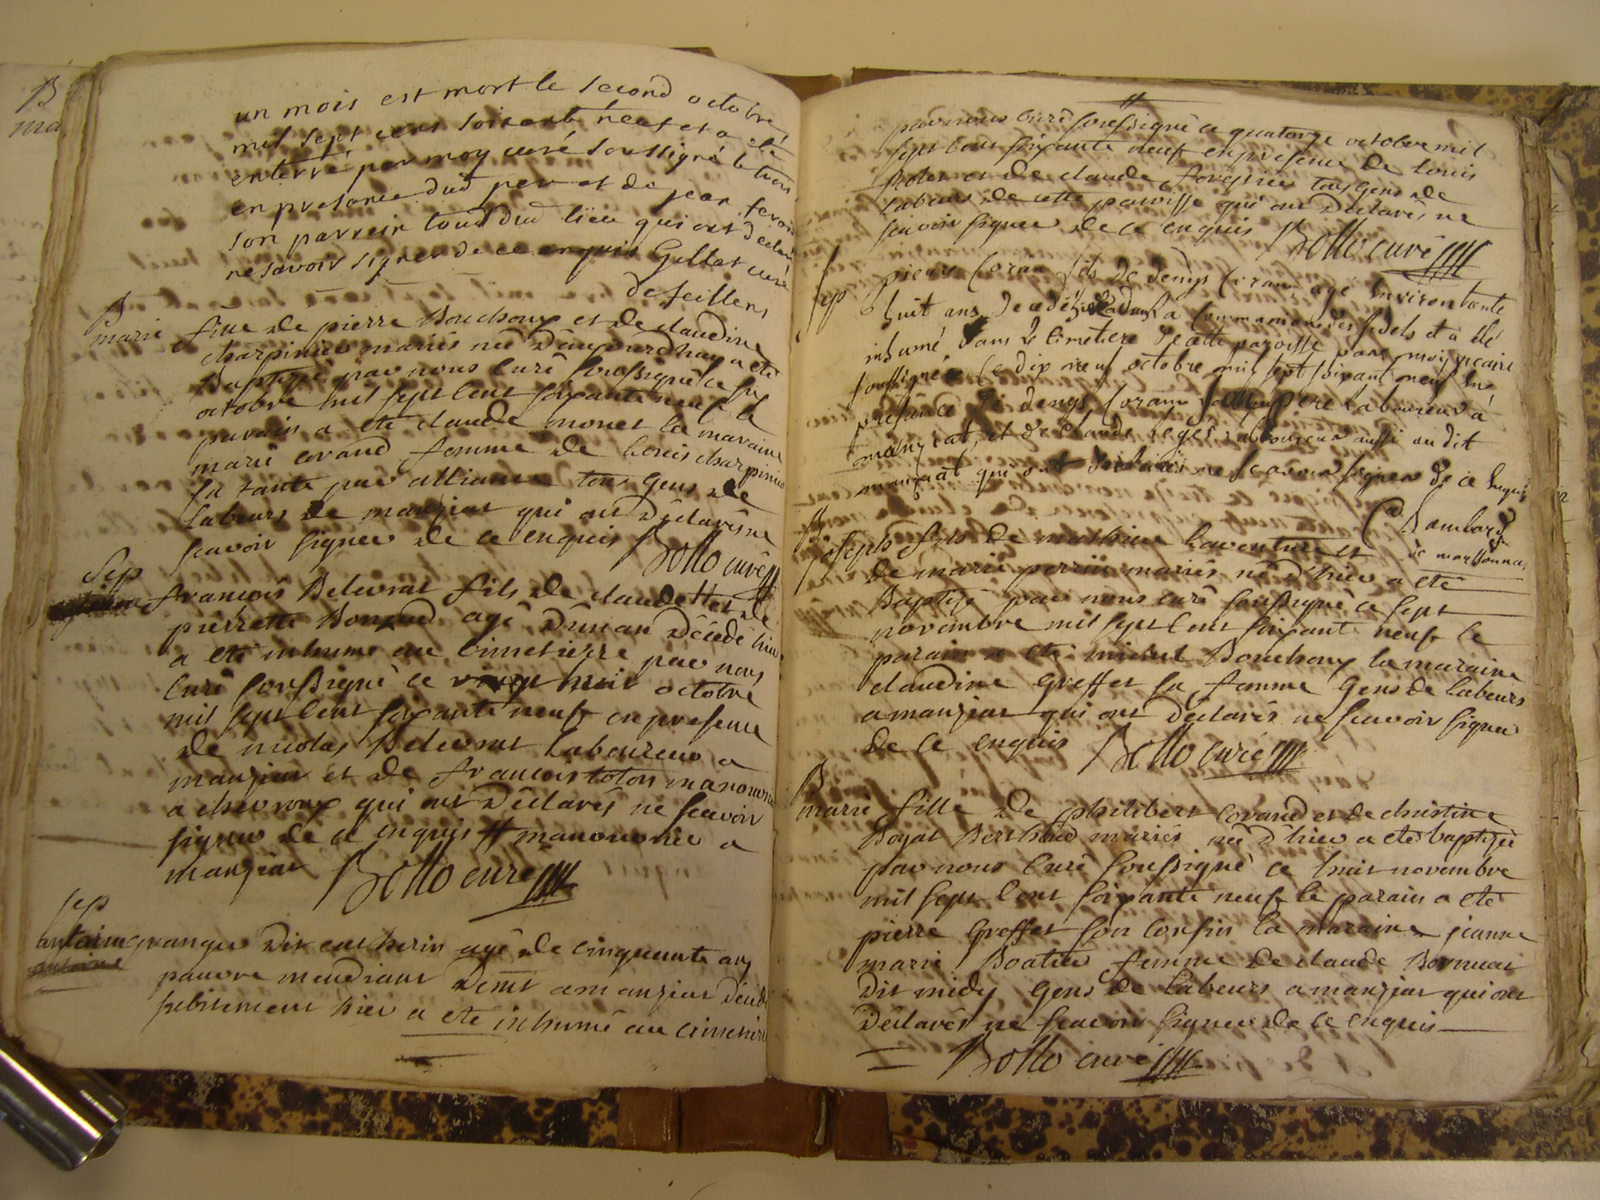 B
un mois est mort le second octobre
mil sept cens soisente neuf et a eté
enterré par moy curé soussigné le trois
en presence dud per et de jean
son parrein tous dud lieu qui ont declaré
ne savoir signer de ce enquis Gellet curé
de Seillers
B
marie fille de pierre Bouchoux et de claudine
charpinier mariés née d'aujourdhuy a eté
Baptisé par nous curé soussigné ce six
octobre mil sept cent soixante neuf le
parain a eté claude monet la maraine
marie corand femme de louis charpinier
sa tante par alliance tous gens de
labeurs de manziat qui ont déclarés ne
scavoir signer de ce enquis Bollo curé
Sep
francois Belevrat fils de claude et de
pierrette Bonzod agé d'un an décédé hier
a eté inhumé au cimetierre par nous
Curé soussigné ce octobre
mil sept cent soixante neuf en presence
de nicolas Belevrat laboureur a
manziat et de francois toton manouvrier
a chevroux qui ont déclarés ne scavoir
signer de ce enquis # manouvrier a
manziat Bollo curé
sep
antoine grangier dit catherin agé de cinquante ans
antoine
pauvre mendiant demt a manziat décédé
subitement hier a eté inhumé au cimetiere
par nous curé soussigné ce quatorze octobre mil
sept cent soixante neuf en presence de louis
et de claude tous gens de
labeurs de cette paroisse qui ont déclarés ne
scavoir signer de ce enquis Bollo curé
Sep
pierre Coran fils de denys Coran agé d'environ trente
huit ans decedé hier dans la communion des fidels et a eté
inhumé dans le cimetiere de cette paroisse par moy vicaire
soussigné ce dix neuf octobre mil sept soixante neuf en
presence de denys Coran son pere laboureur a
manziat et de claude laboureur aussi au dit
manziat qui ont déclarés ne scavoir signer de ce enquis
de marsonnas
B
joseph fils de mathieu laventure et
de marie perrin mariés né d'hier a eté
Baptisé par nous curé soussigné ce sept
novembre mil sept cent soixante neuf le
parain a eté michel Bouchoux la maraine
claudine Greffet sa femme Gens de labeurs
a manziat qui ont déclarés ne scavoir signer
de ce enquis Bollo curé
B
marie fille de philibert Corand et de christine
Boyat Berthaud mariés née d'hier a eté baptizée
par nous Curé soussigné ce huit novembre
mil sept cent soixante neuf le parain a eté
pierre Greffet son Cousin la maraine jeanne
marie Boatier femme de claude
dit midy Gens de labeurs a manziat qui ont
déclarés ne scavoir signer de ce enquis
Bollo curé